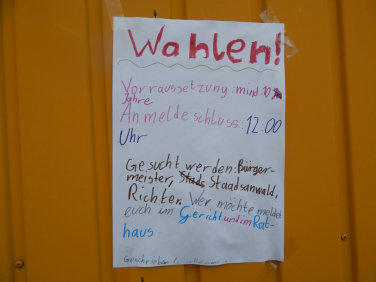 Wahlen!
Vorraussetzung: mind. 10
Jahre
Anmeldeschluss: 12:00
Uhr
Gesucht werden: Bürger-
meister, Staadsanwald,
Richter. Wer möchte meldet
euch im Gericht und im Rat-
haus.
Geschrieben